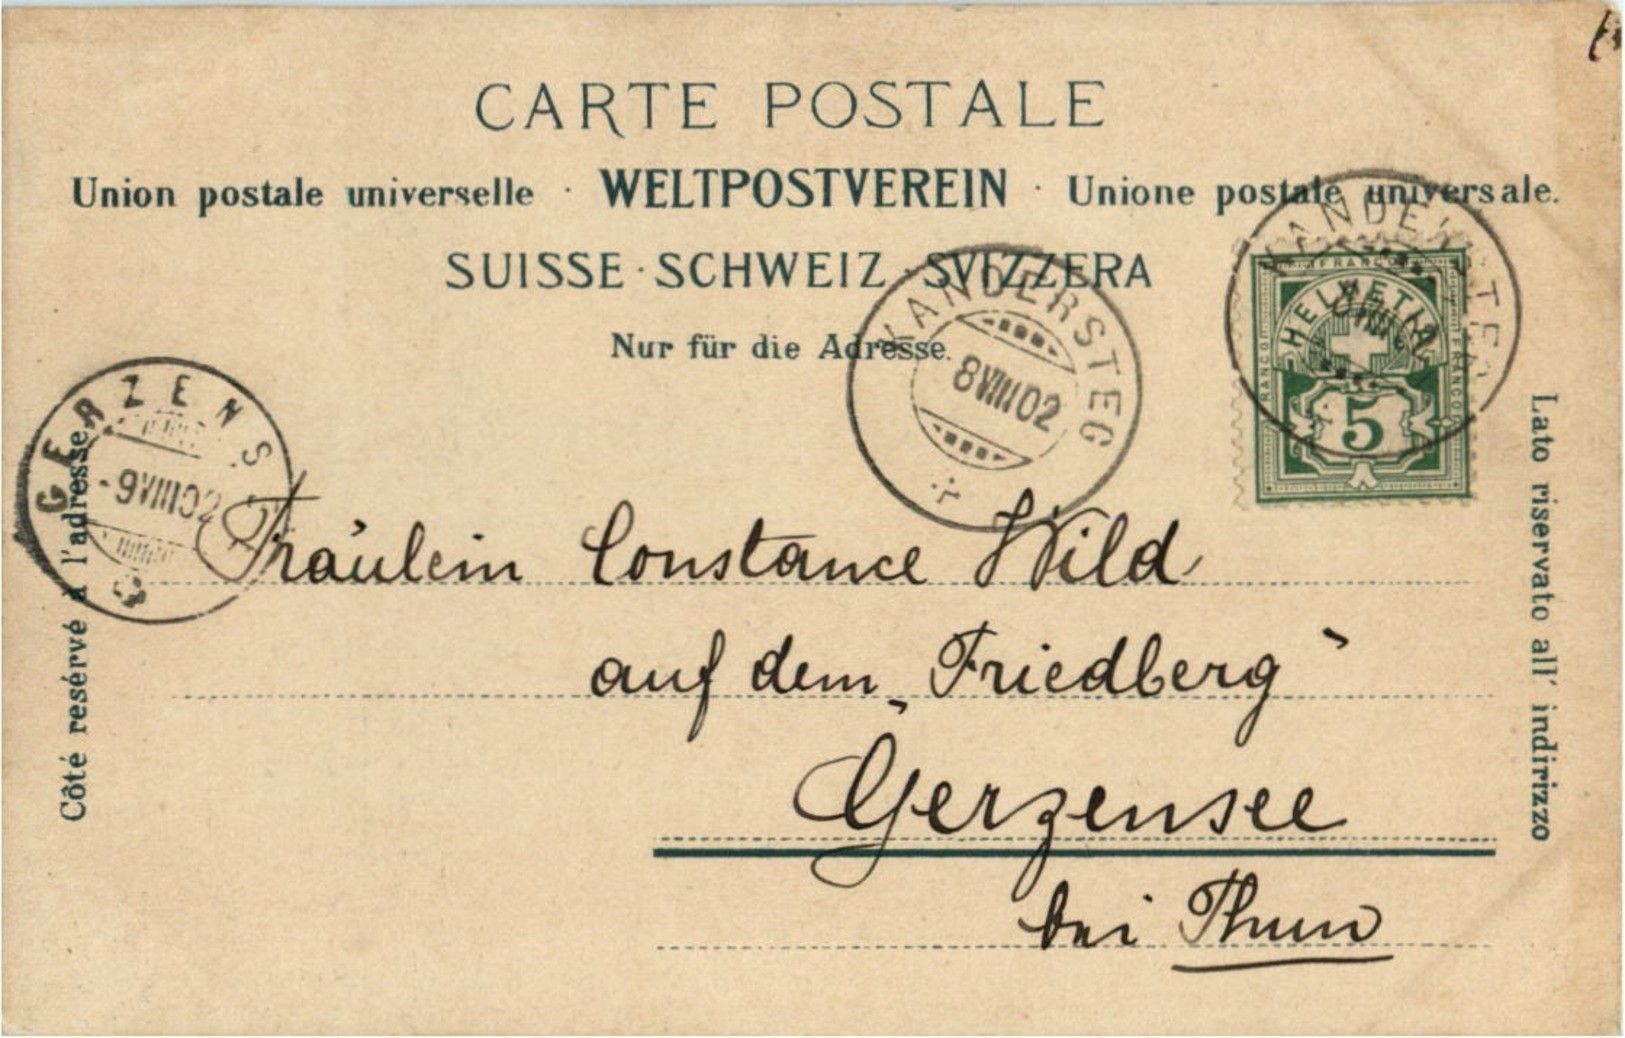 CARTE POSTALE
Union postale universelle · WELTPOSTVEREIN · Unione postale universale.
SUISSE · SCHWEIZ · SVIZZERA
Nur für die Adresse.
KANDERSTEG
8 VIII 02
KANDERSTEG
FRANCO
HELVETIA
FRANCO
FRANCO
5
GERZENSEE
-9 VIII 02
Côté resérvé à l'adresse
Lato riservato all' indirizzo
Fräulein Constance Wild
auf dem „Friedberg“
Gerzensee
bei Thun